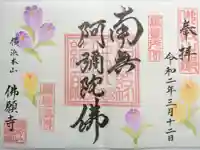 奉拝
令和二年三月十二日
南無
阿彌陀佛
横浜本山
佛願寺